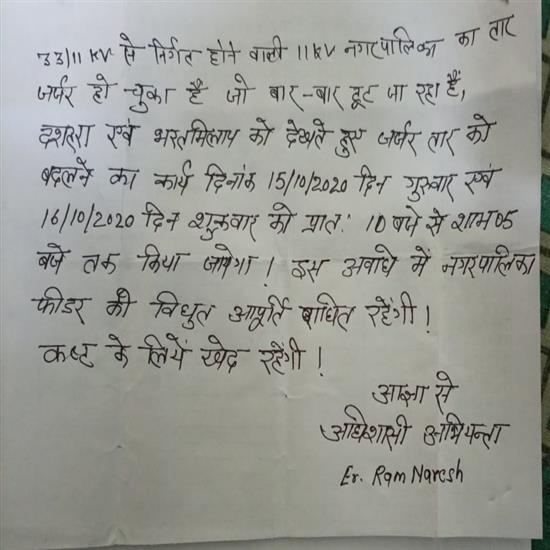 33/11 KV से निर्गत होने वाली 11KV नगरपालिका का तार
जर्फर हो चुका है जो बार-बार टूट जा रहा है,
दशहरा एवं भरतमिलाप को देखते हुए जर्जर तार को
बदलने का कार्य दिनांक 15/10/2020 दिन गुरुवार एवं
16/10/2020 दिन शुक्रवार को प्रातः 10 बजे से शाम 05
बजे तक किया जायेगा! इस अवधि में नगरपालिका
फीडर की विधुत आपूर्ति बाधित रहेंगी!
कष्ट के लियें खेद रहेंगी!
आज्ञा से
अधिशासी अभियन्ता
Er. Ram Naresh